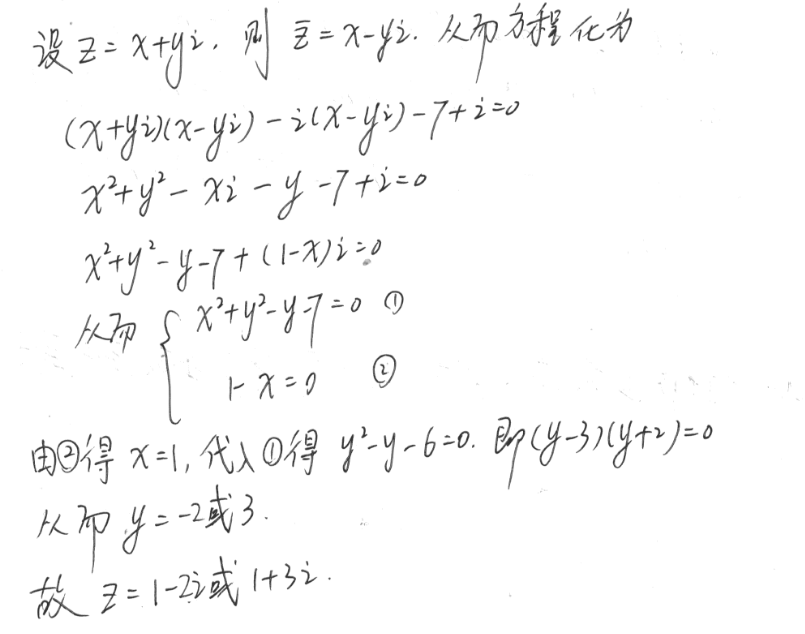 设 z = x+yi. 则 z̄ = x-yi. 从而方程化为
(x+yi)(x-yi) - i(x-yi) - 7 + i = 0
x²+y² - xi - y - 7 + i = 0
x²+y²-y-7+(1-x)i=0
从而 { x²+y²-y-7=0 ①
1-x=0 ②
由②得 x=1, 代入①得 y²-y-6=0. 即(y-3)(y+2)=0
从而 y=-2或3.
故 z=1-2i或1+3i.